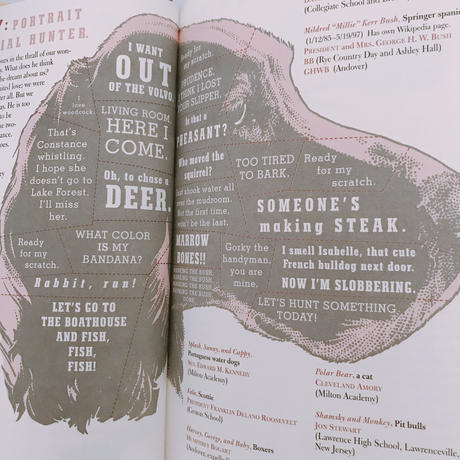 7: PORTRAIT
IAL HUNTER.
uses in the thrall of our won-
What does he think
he dream about us?
I WANT
OUT
OF THE VOLVO.
I
love
woodcock.
LIVING ROOM,
HERE I
COME.
That's
Constance
whistling.
I hope she
doesn't go to
Lake Forest.
I'll miss
her.
Oh, to chase a
DEER.
Ready
for my
scratch.
WHAT COLOR
IS MY
BANDANA?
Rabbit, run!
LET'S GO TO
THE BOATHOUSE
AND FISH,
FISH,
FISH!
Ready for
my
scratch.
PRUDENCE,
I THINK I LOST
YOUR SLIPPER.
Is that a
PHEASANT?
Who moved the
squirrel?
TOO TIRED
TO BARK.
Ready
for my
scratch.
Just shook water all
over the mudroom.
Not the first time,
won't be the last.
SOMEONE'S
making STEAK.
MARROW
BONES!!
Gorky the
handyman,
you are
mine.
I smell Isabelle, that cute
French bulldog next door.
NOW I'M SLOBBERING.
LET'S HUNT SOMETHING
TODAY!
(Collegiate School and
Mildred "Millie" Kerr Bush, Springer spani
(1/12/85–5/19/97) Has own Wikipedia page.
PRESIDENT AND MRS. GEORGE H. W. BUSH
BB (Rye Country Day and Ashley Hall)
GHWB (Andover)
Splash, Sunny, and Cappy,
Portuguese water dogs
SEN. EDWARD M. KENNEDY
(Milton Academy)
Fala, Scottie
PRESIDENT FRANKLIN DELANO ROOSEVELT
(Groton School)
Harvey, George, and Baby, Boxers
HUMPHREY BOGART
(Andover, expelled
Polar Bear, a cat
CLEVELAND AMORY
(Milton Academy)
Shamsky and Monkey, Pit bulls
JON STEWART
(Lawrence High School, Lawrenceville,
New Jersey)